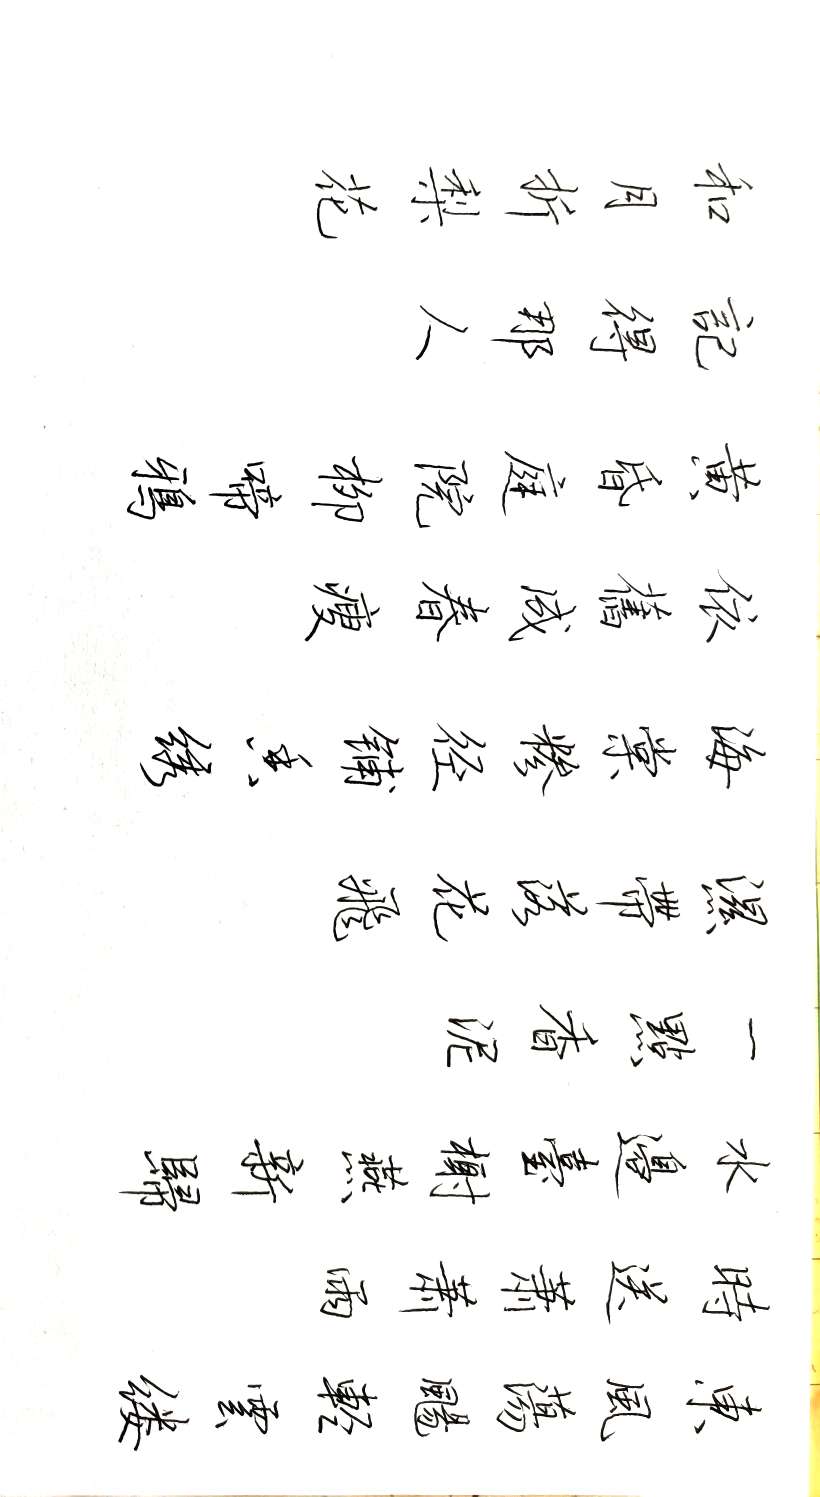 東風蕩颺輕雲縷
時送蕭蕭雨
水邊臺榭燕新歸
一點香泥
濕帶落花飛
海棠糝径鋪香繡
依舊成春瘦
黄昏庭院柳啼鴉
記得那人
和月折梨花